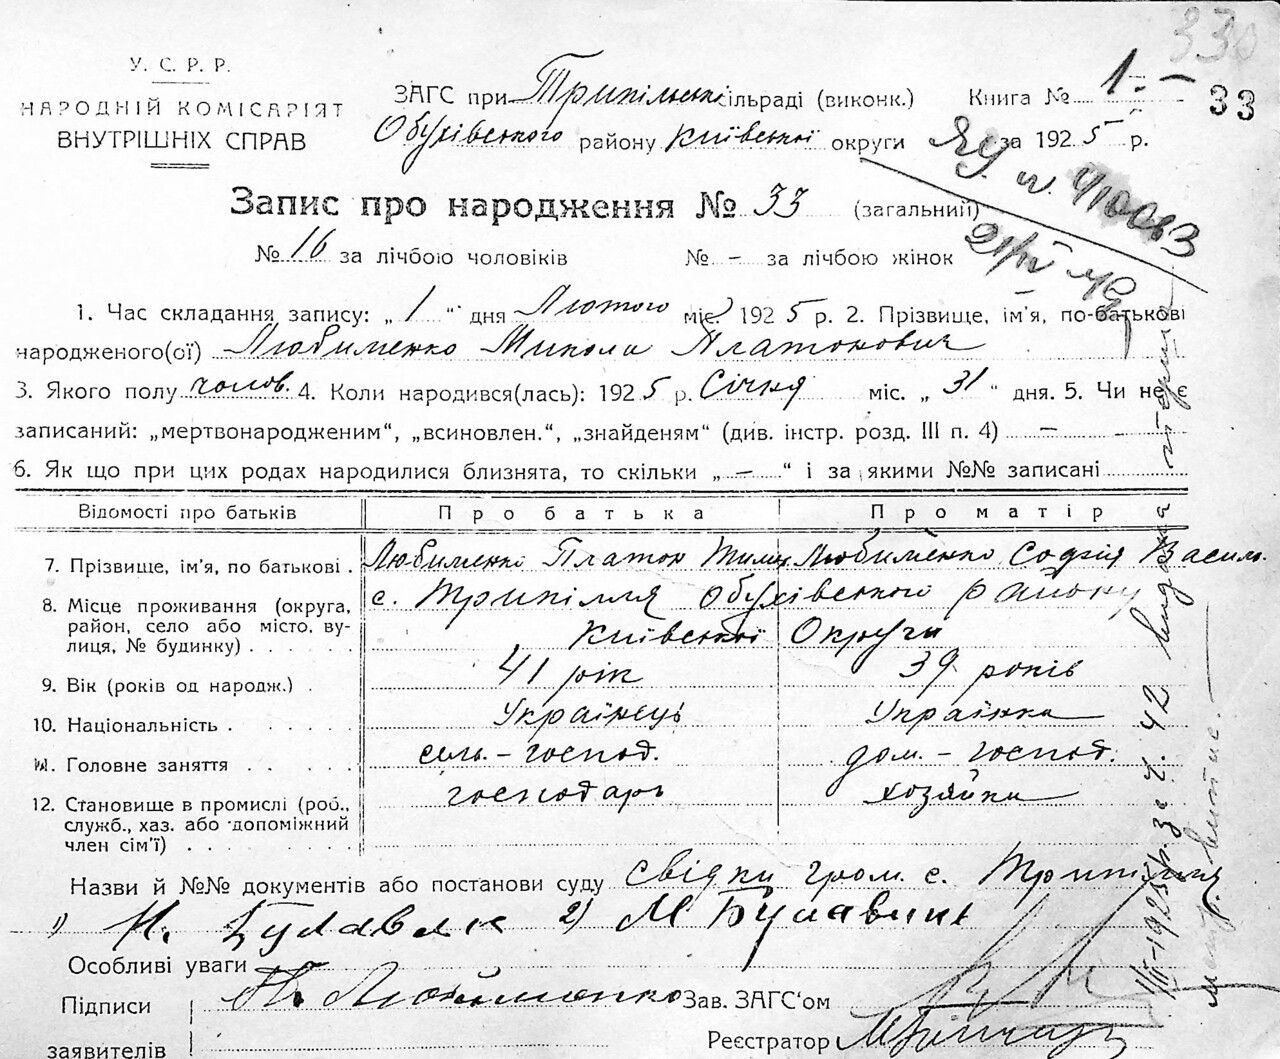 330
У. С. Р. Р.
НАРОДНІЙ КОМІСАРІЯТ
ВНУТРІШНІХ СПРАВ
ЗАГС при Трипільськ. сільраді (виконк.) Книга № 1.- 33
Обухівського району Київської округи за 1925 р.
Запис про народження № 33 (загальний)
№ 16 за лічбою чоловіків № - за лічбою жінок
1. Час складання запису: „ 1 “ дня Лютого міс. 1925 р. 2. Прізвище, ім'я, по-батькові
народженого(ої) Любименко Микола Платонович
3. Якого полу чолов. 4. Коли народився(лась): 1925 р. Січня міс. „ 31 “ дня. 5. Чи не є
записаний: „мертвонародженим“, „всиновлен.“, „знайденям“ (див. інстр. розд. III п. 4) —
6. Як що при цих родах народилися близнята, то скільки „ — “ і за якими №№ записані
Відомості про батьків Про батька Про матір
7. Прізвище, ім'я, по батькові . Любименко Платон Тим. Любименко Софія Василь.
8. Місце проживання (округа, с. Трипілля Обухівського району
район, село або місто, ву-
лиця, № будинку) . . . . . . Київської Округи
9. Вік (років од народж.) . 41 рік 39 років
10. Національність . . . . . . Українець Українка
11. Головне заняття . . . . . . сель.-господ. дом.-господ.
12. Становище в промислі (роб., господарь хозяйка
служб., хаз. або допоміжний
член сім'ї) . . . . . . . .
Назви й №№ документів або постанови суду свідки гром. с. Трипілля
1) Н. Булавик 2) М Булавин
Особливі уваги
Підписи Любименко Зав. ЗАГС'ом
заявителів Реєстратор